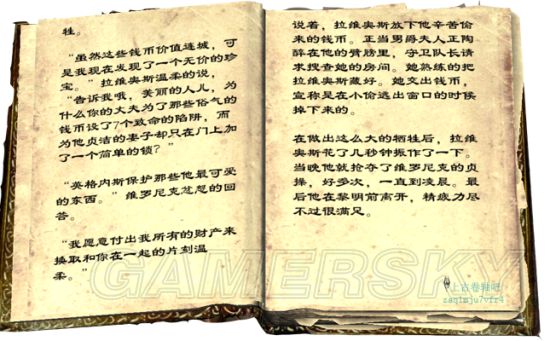 牲。
“虽然这些钱币价值连城，可
是我现在发现了一个无价的珍
宝。” 拉维奥斯温柔的说，
“告诉我哦，美丽的人儿，为
什么你的丈夫为了那些俗气的
钱币设了7个致命的陷阱，而
为他贞洁的妻子却只在门上加
了一个简单的锁？”
“英格内斯保护那些他最可爱
的东西。” 维罗尼克忿怨的回
答。
“我愿意付出我所有的财产来
换取和你在一起的片刻温
柔。”
说着，拉维奥斯放下他辛苦偷
来的钱币。正当男爵夫人正陶
醉在他的臂膀里，守卫队长请
求搜查她的房间。她熟练的把
拉维奥斯藏好。她交出钱币，
宣称是在小偷逃出窗口的时候
掉下来的。
在做出这么大的牺牲后，拉维
奥斯花了几秒钟振作了一下。
当晚他就抢夺了维罗尼克的贞
操，好多次，一直到凌晨。最
后他在黎明前离开，精疲力尽
不过很满足。
GAMERSKY
上古卷轴吧
zaq1mju7vfr4